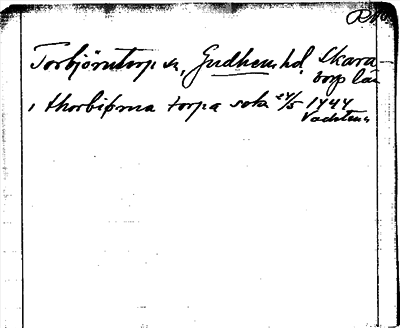 Torbjörntorp sn, Gudhems hd, Skara-
borgs län
i thorbiørna torpa sokn 24/5 1444
Vadstena